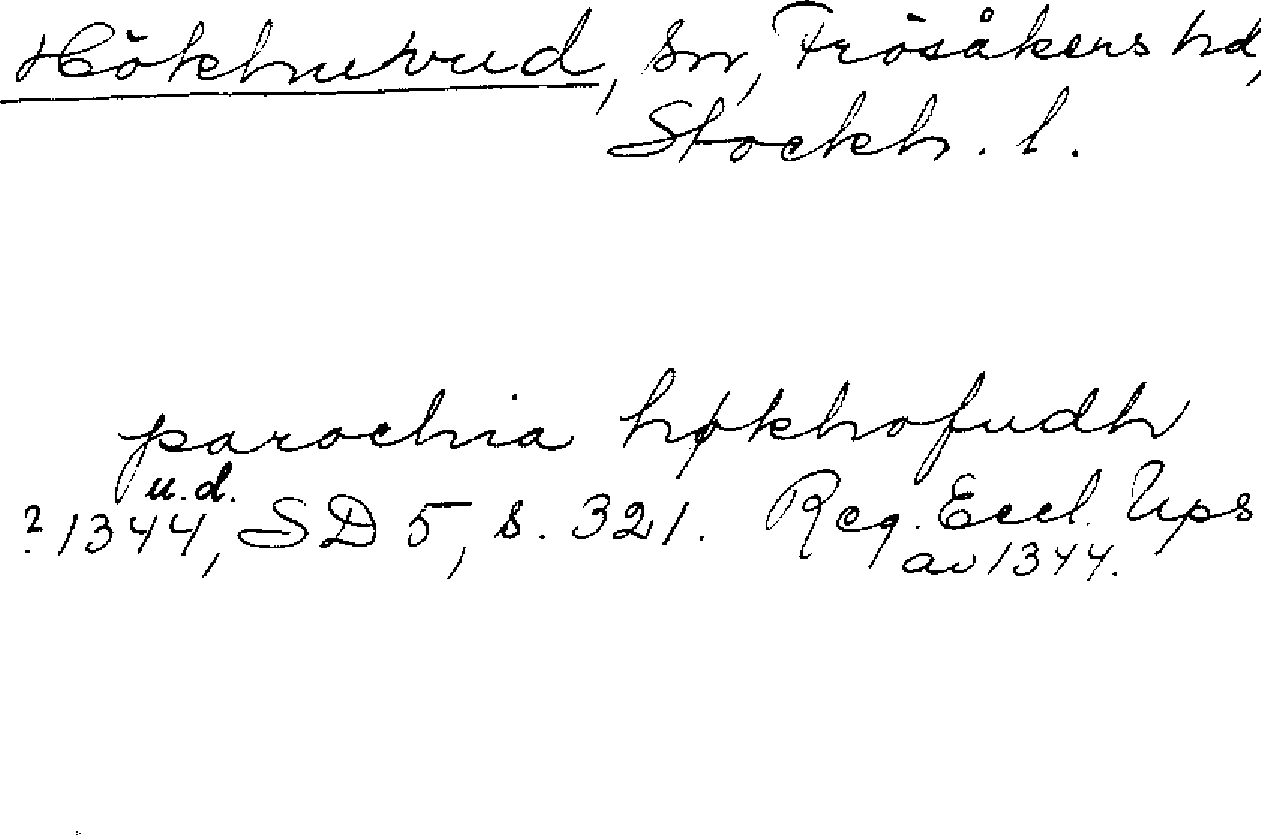 Hökhuvud, sn, Frösåkers hd,
Stockh. l.
parochia høkhofudh
u.d.
? 1344, SD 5, s. 321. Reg. Eccl. Ups
av 1344.